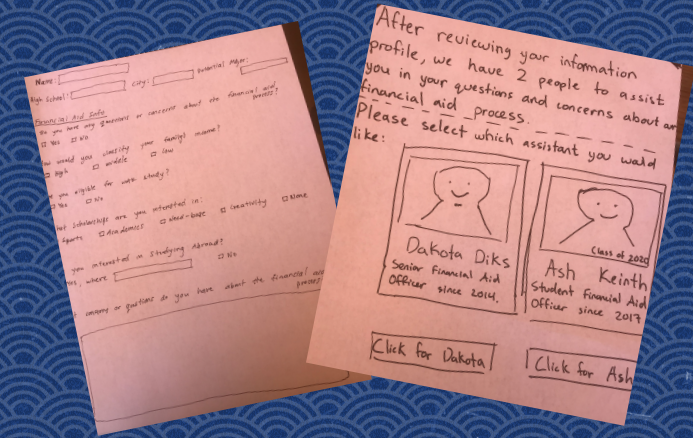 Name:
City:
Potential Major:
High School:
Financial Aid Info
you have any questions or concerns about the financial aid
process?
□ Yes □ No
would you classify your family's income?
□ High □ middle □ low
you eligible for work study?
□ Yes □ No
Scholarships are you interested in:
Sports □ Academics □ Need-base □ Creativity □ None
you interested in Studying Abroad?
where □ No
concerns or questions do you have about the financial aid
process?
After reviewing your information
profile, we have 2 people to assist
you in your questions and concerns about
financial aid process.
Please select which assistant you would
like:
Dakota Diks
Senior Financial Aid
Officer since 2014.
Click for Dakota
Class of 2020
Ash Keinth
Student Financial Aid
Officer since 2017
Click for Ash